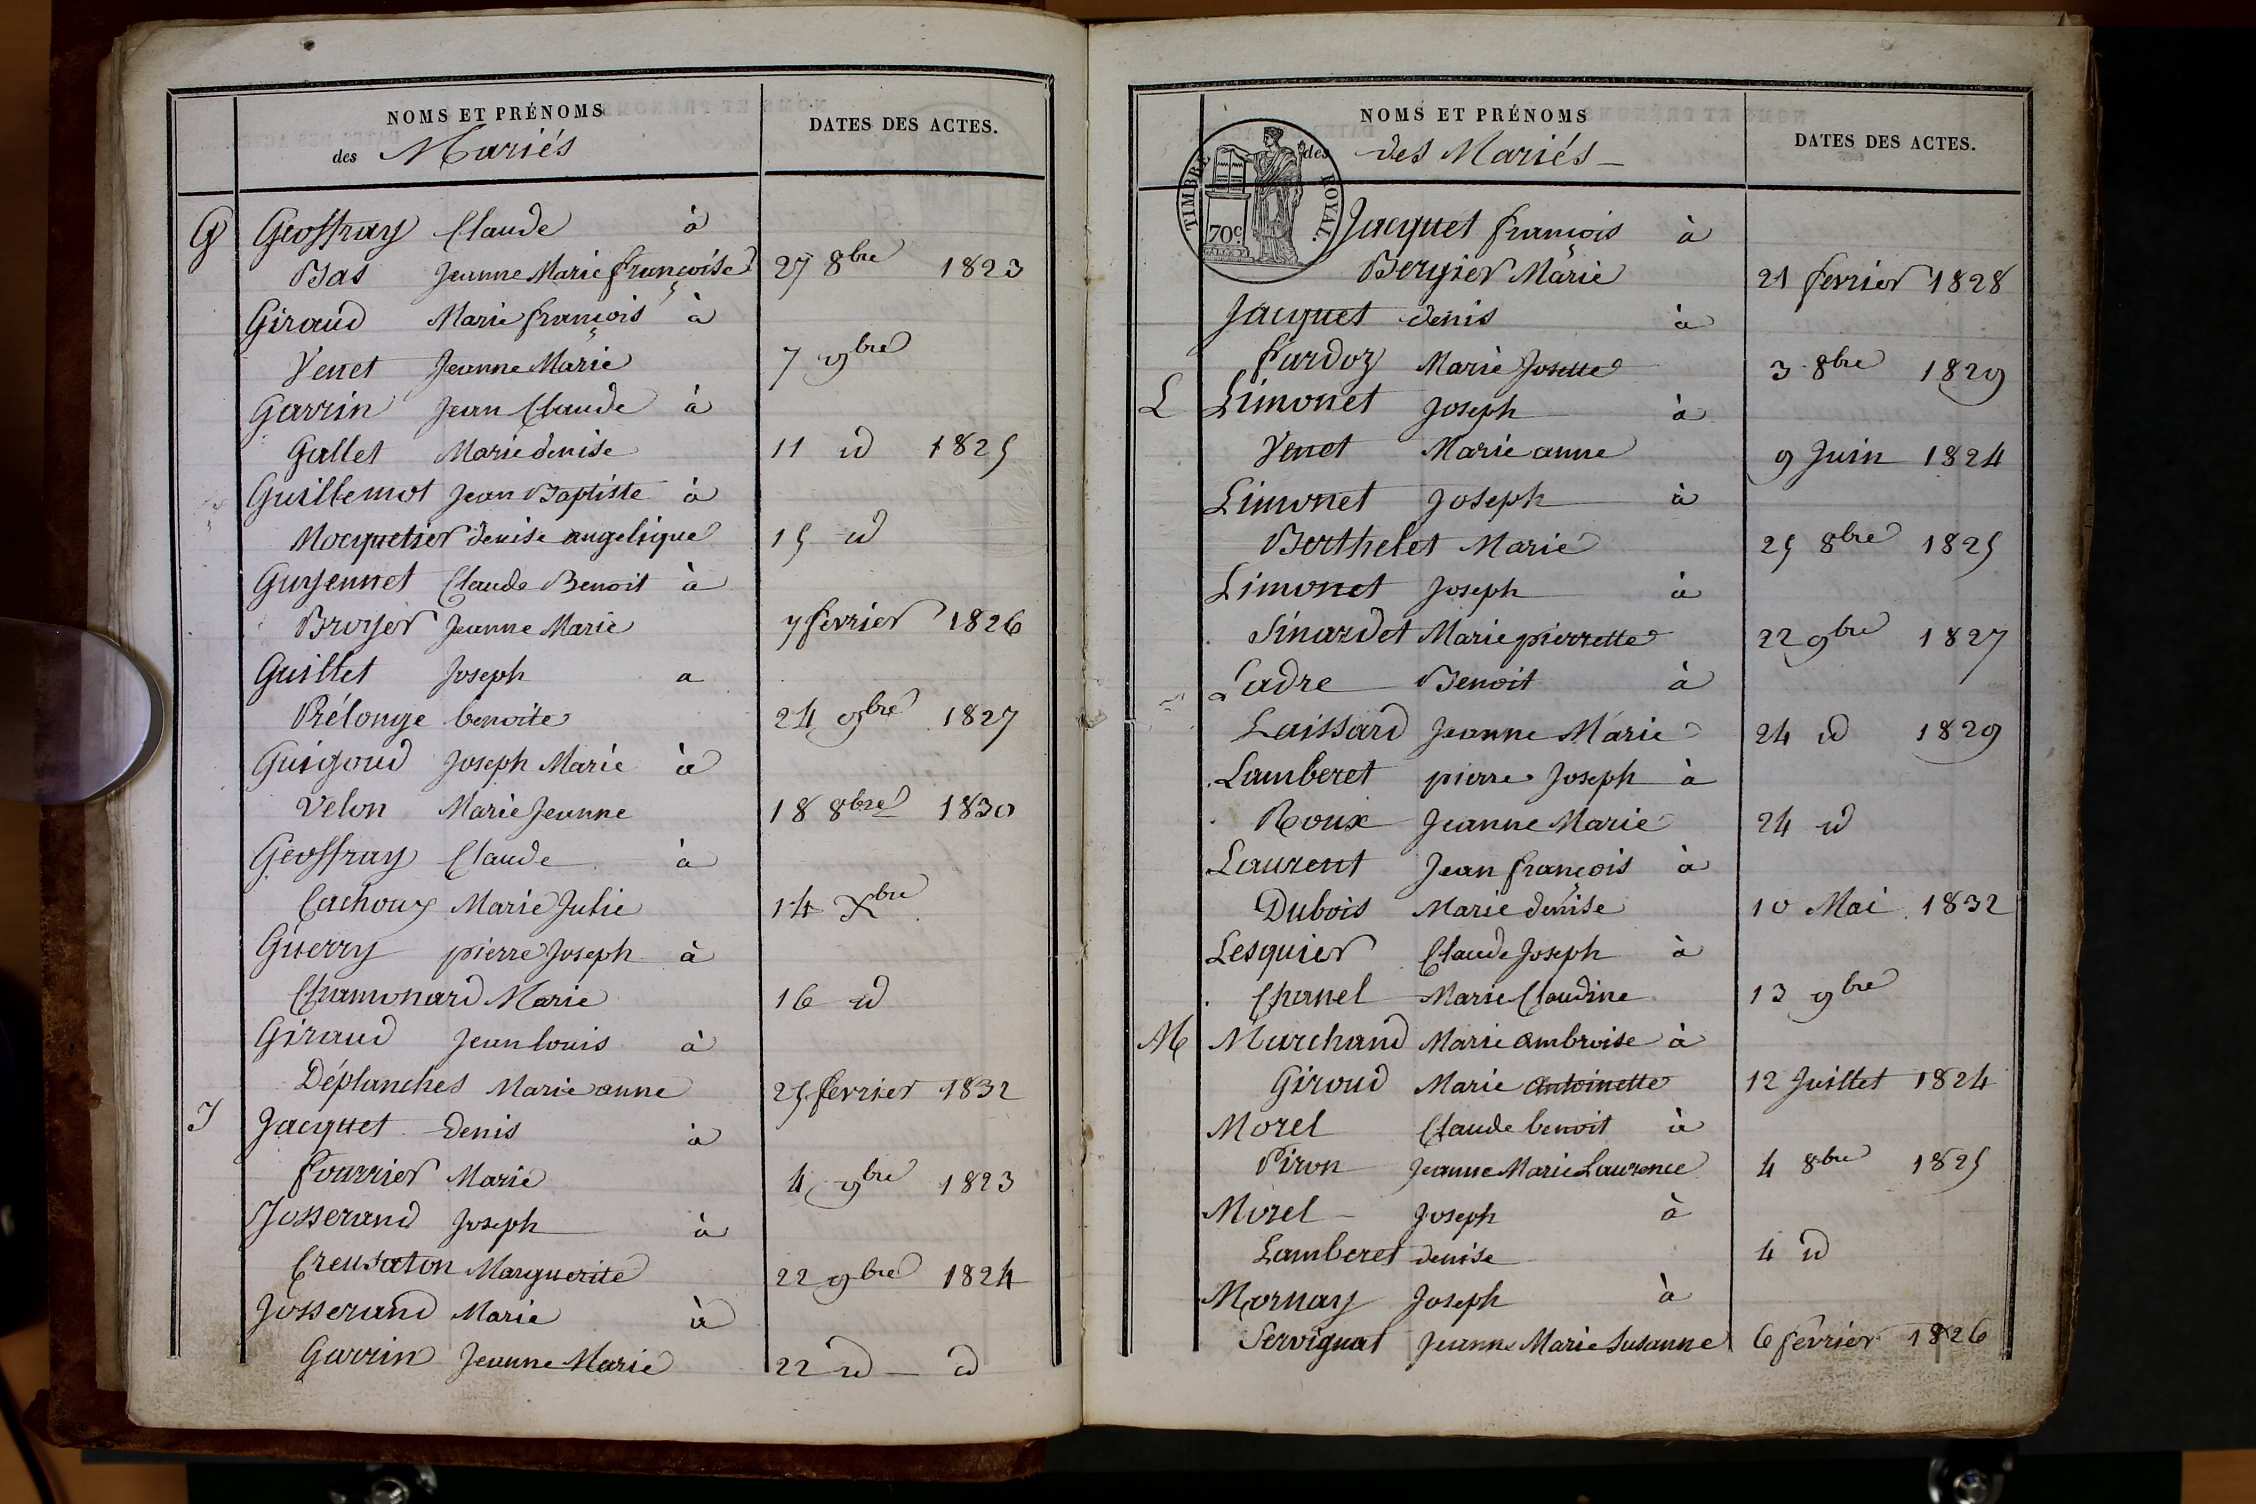 NOMS ET PRÉNOMS
des Mariés
DATES DES ACTES.
G Geoffray Claude à
Bas Jeanne Marie françoise 27 8bre 1823
Giraud Marie françois à
Venet Jeanne Marie 7 9bre
Garrin Jean Claude à
Gallet Marie denise 11 id 1825
Guillemot Jean Baptiste à
Mocquetier denise angelique 15 id
Guyennet Claude Benoit à
Broyer Jeanne Marie 7 fevrier 1826
Guillet Joseph a
Prélonge benoite 24 9bre 1827
Guigoud Joseph Marie à
Velon Marie Jeanne 18 8bre 1830
Geoffray Claude à
Cachoux Marie Julie 14 Xbre
Guerry pierre Joseph à
Chamonard Marie 16 id
Giraud Jean louis à
Déplanches Marie anne 25 fevrier 1832
J Jacquet denis à
fourrier Marie 4 9bre 1823
Josserand Joseph à
Creusaton Marguerite 22 9bre 1824
Josserand Marie à
Garrin Jeanne Marie 22 id id
NOMS ET PRÉNOMS
des des Mariés
DATES DES ACTES.
TIMBRE ROYAL.
70c
Jacquet françois à
Bergier Marie 21 fevrier 1828
Jacquet denis à
fardoz Marie Josette 3 8bre 1829
L Limonet Joseph à
Venet Marie anne 9 Juin 1824
Limonet Joseph à
Berthelet Marie 25 8bre 1825
Limonet Joseph à
Sinardet Marie pierrette 22 9bre 1827
Ladre Benoit à
Laissard Jeanne Marie 24 id 1829
Lamberet pierre Joseph à
Roux Jeanne Marie 24 id
Laurent Jean françois à
Dubois Marie denise 10 Mai 1832
Lesquier Claude Joseph à
Chanel Marie Claudine 13 9bre
M Marchand Marie ambroise à
Giroud Marie antoinette 12 Juillet 1824
Morel Claude benoit à
Piron Jeanne Marie Laurence 4 8bre 1825
Morel Joseph à
Lamberet denise 4 id
Mornay Joseph à
Servignat Jeanne Marie Susanne 6 fevrier 1826